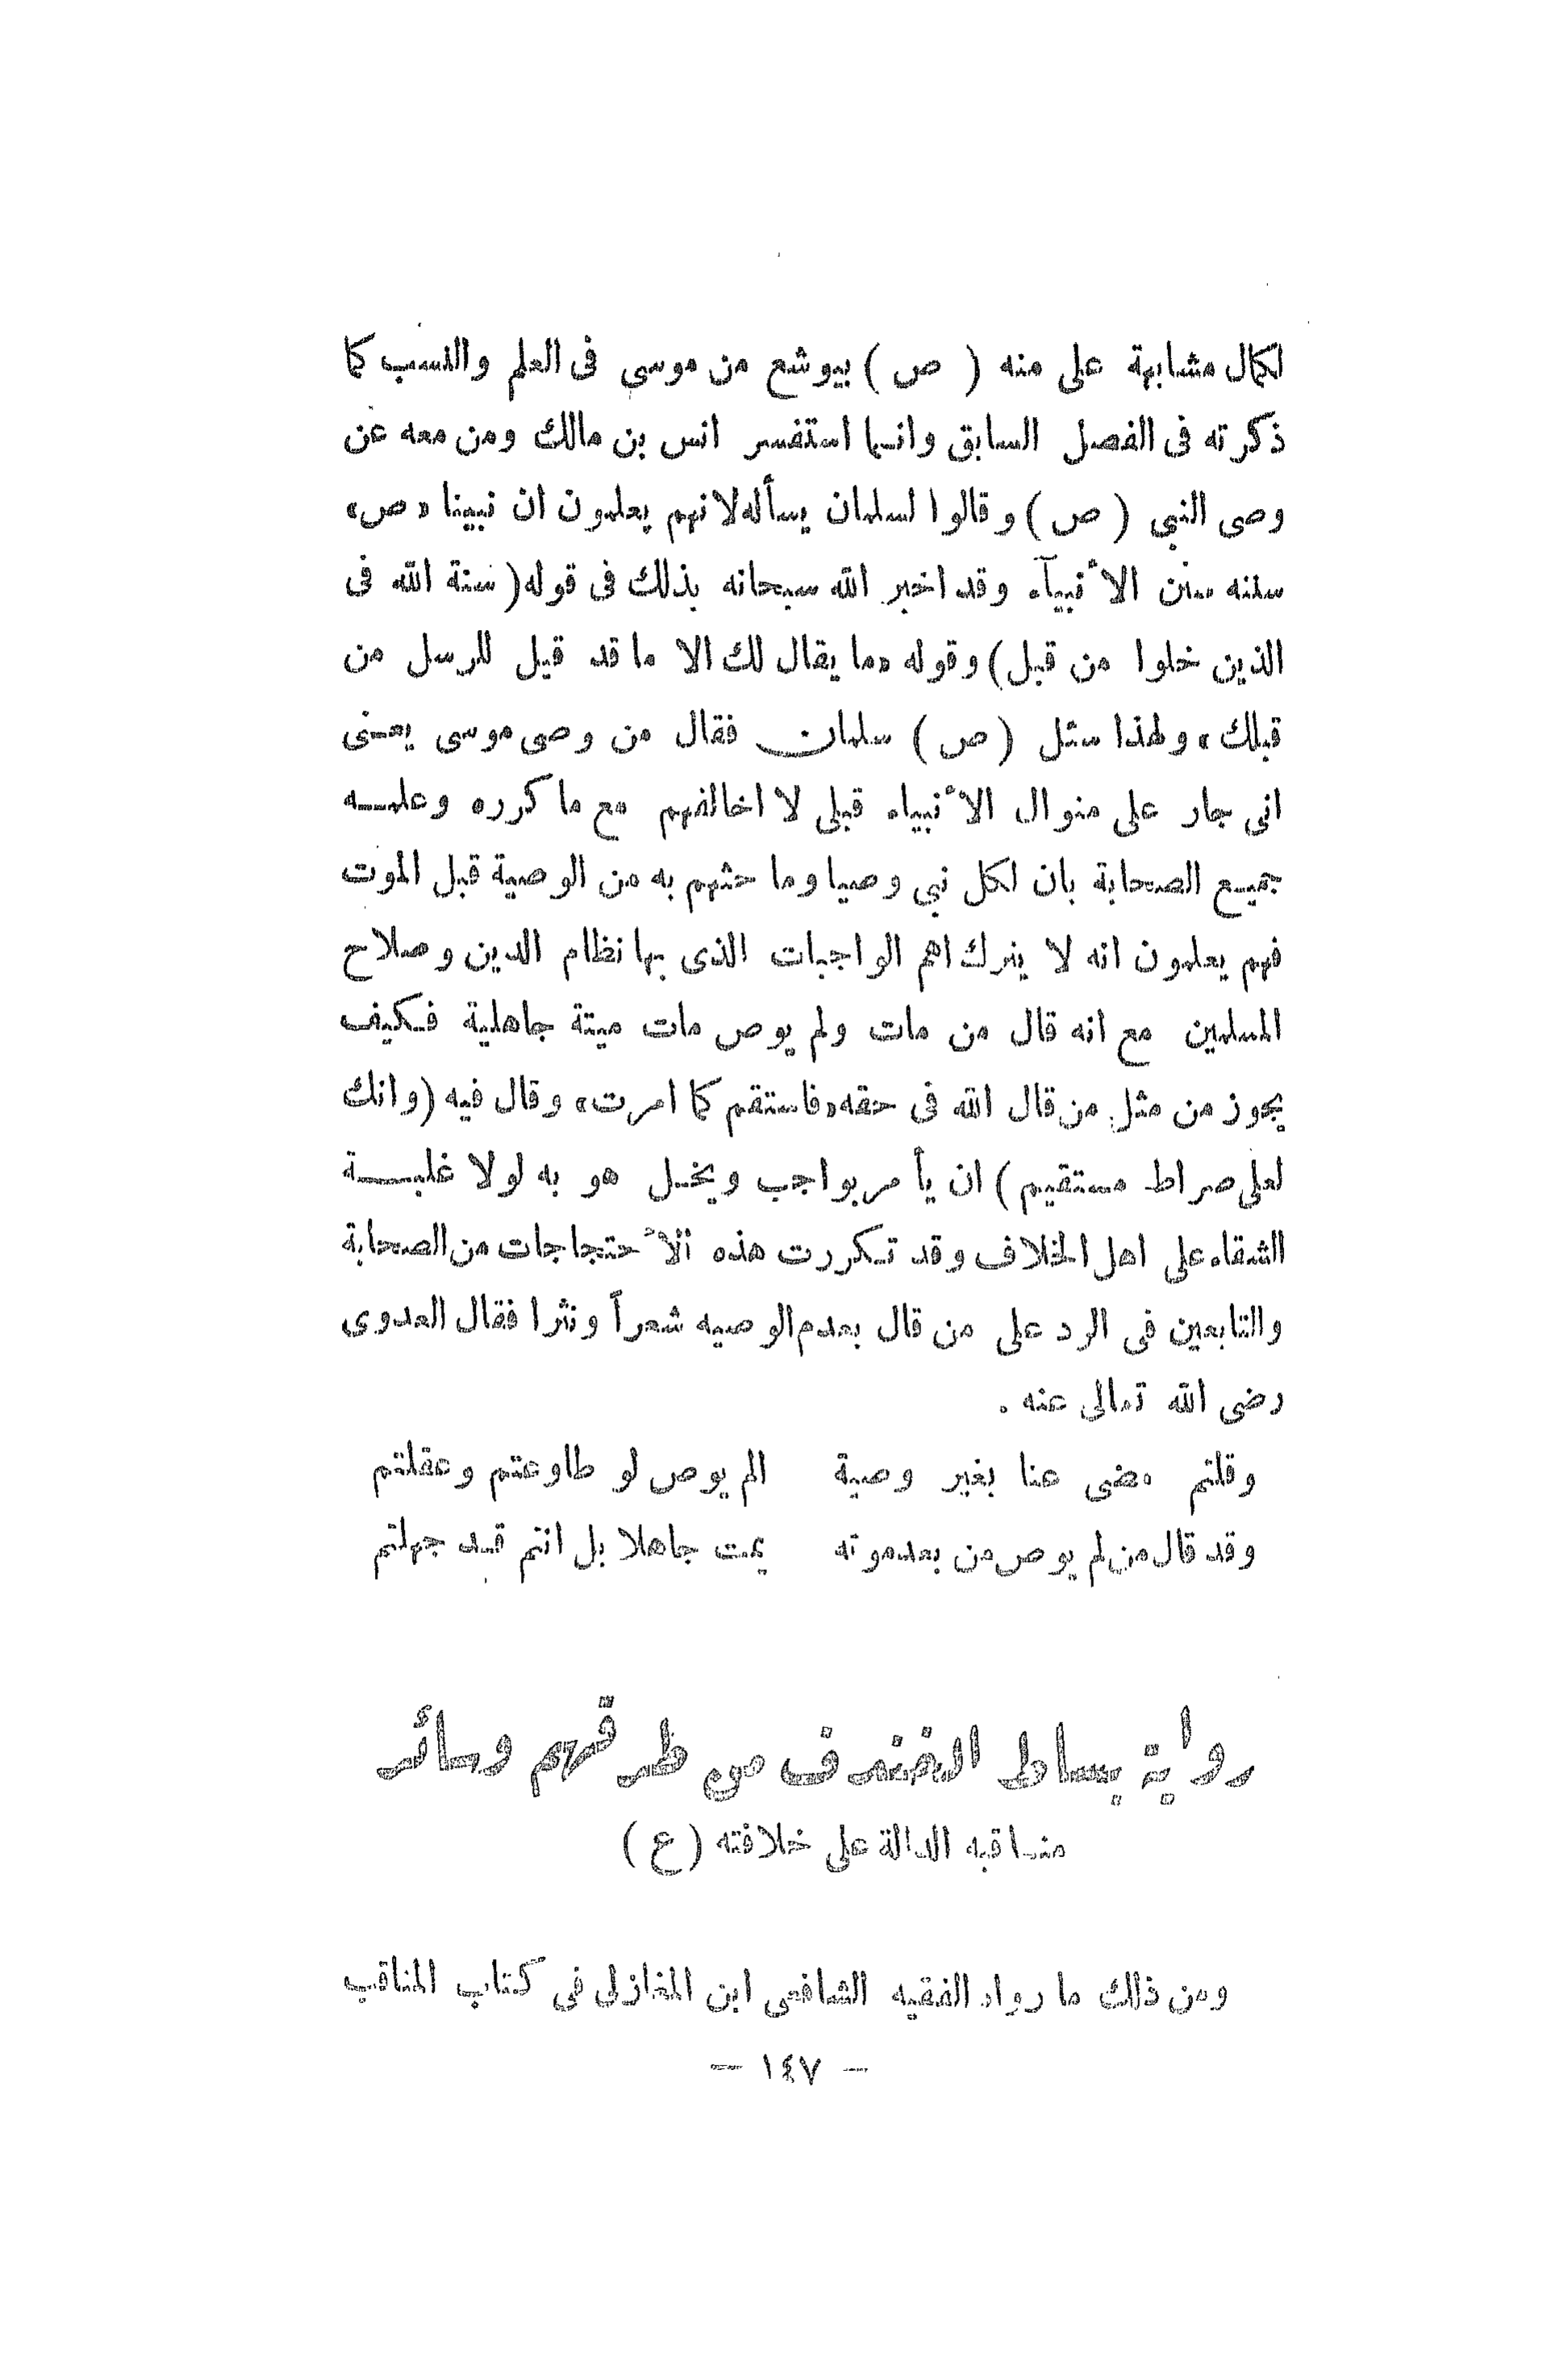 لكمال مشابهة على منه ( ص ) بيوشع من موسى فى العلم والنسب كما
ذكرته فى الفصل السابق وانما استفسر انس بن مالك ومن معه عن
وصى النبي ( ص ) وقالوا لسلمان يسأله لانهم يعلمون ان نبينا «ص»
سننه سنن الأنبيآء وقد اخبر الله سبحانه بذلك فى قوله ( سنة الله فى
الذين خلوا من قبل ) وقوله «ما يقال لك الا ما قد قيل للرسل من
قبلك» ولهذا سئل ( ص ) سلمان فقال من وصى موسى يعنى
انى جار على منوال الأنبياء قبلى لا اخالفهم مع ما كرره وعلمه
جميع الصحابة بان لكل نبي وصيا وما حثهم به من الوصية قبل الموت
فهم يعلمون انه لا يترك اهم الواجبات الذى بها نظام الدين وصلاح
المسلمين مع انه قال من مات ولم يوص مات ميتة جاهلية فكيف
يجوز من مثل من قال الله فى حقه «فاستقم كما امرت» وقال فيه ( وانك
لعلى صراط مستقيم ) ان يأمر بواجب ويخل هو به لولا غلبة
الشقاء على اهل الخلاف وقد تكررت هذه الأحتجاجات من الصحابة
والتابعين فى الرد على من قال بعدم الوصيه شعراً ونثرا فقال العدوى
رضى الله تعالى عنه .
وقلتم مضى عنا بغير وصية الم يوص لو طاوعتم وعقلتم
وقد قال من لم يوص من بعد موته يمت جاهلا بل انتم قد جهلتم
رواية بساط الخندف من طرقهم وسائر
مناقبه الدالة على خلافته ( ع )
ومن ذلك ما رواه الفقيه الشافعى ابن المغازلى فى كتاب المناقب
— ١٤٧ —